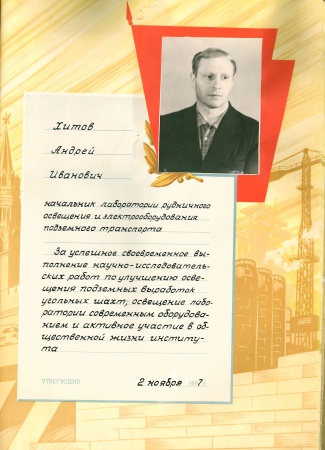 Хитов
Андрей
Иванович
начальник лаборатории рудничного
освещения и электрооборудования
подземного транспорта
За успешное своевременное вы-
полнение научно-исследователь-
ских работ по улучшению осве-
щения подземных выработок
угольных шахт; освещение лабо-
ратории современным оборудова-
нием и активное участие в об-
щественной жизни институ-
та
УТВЕРЖДЕНО 2 ноября